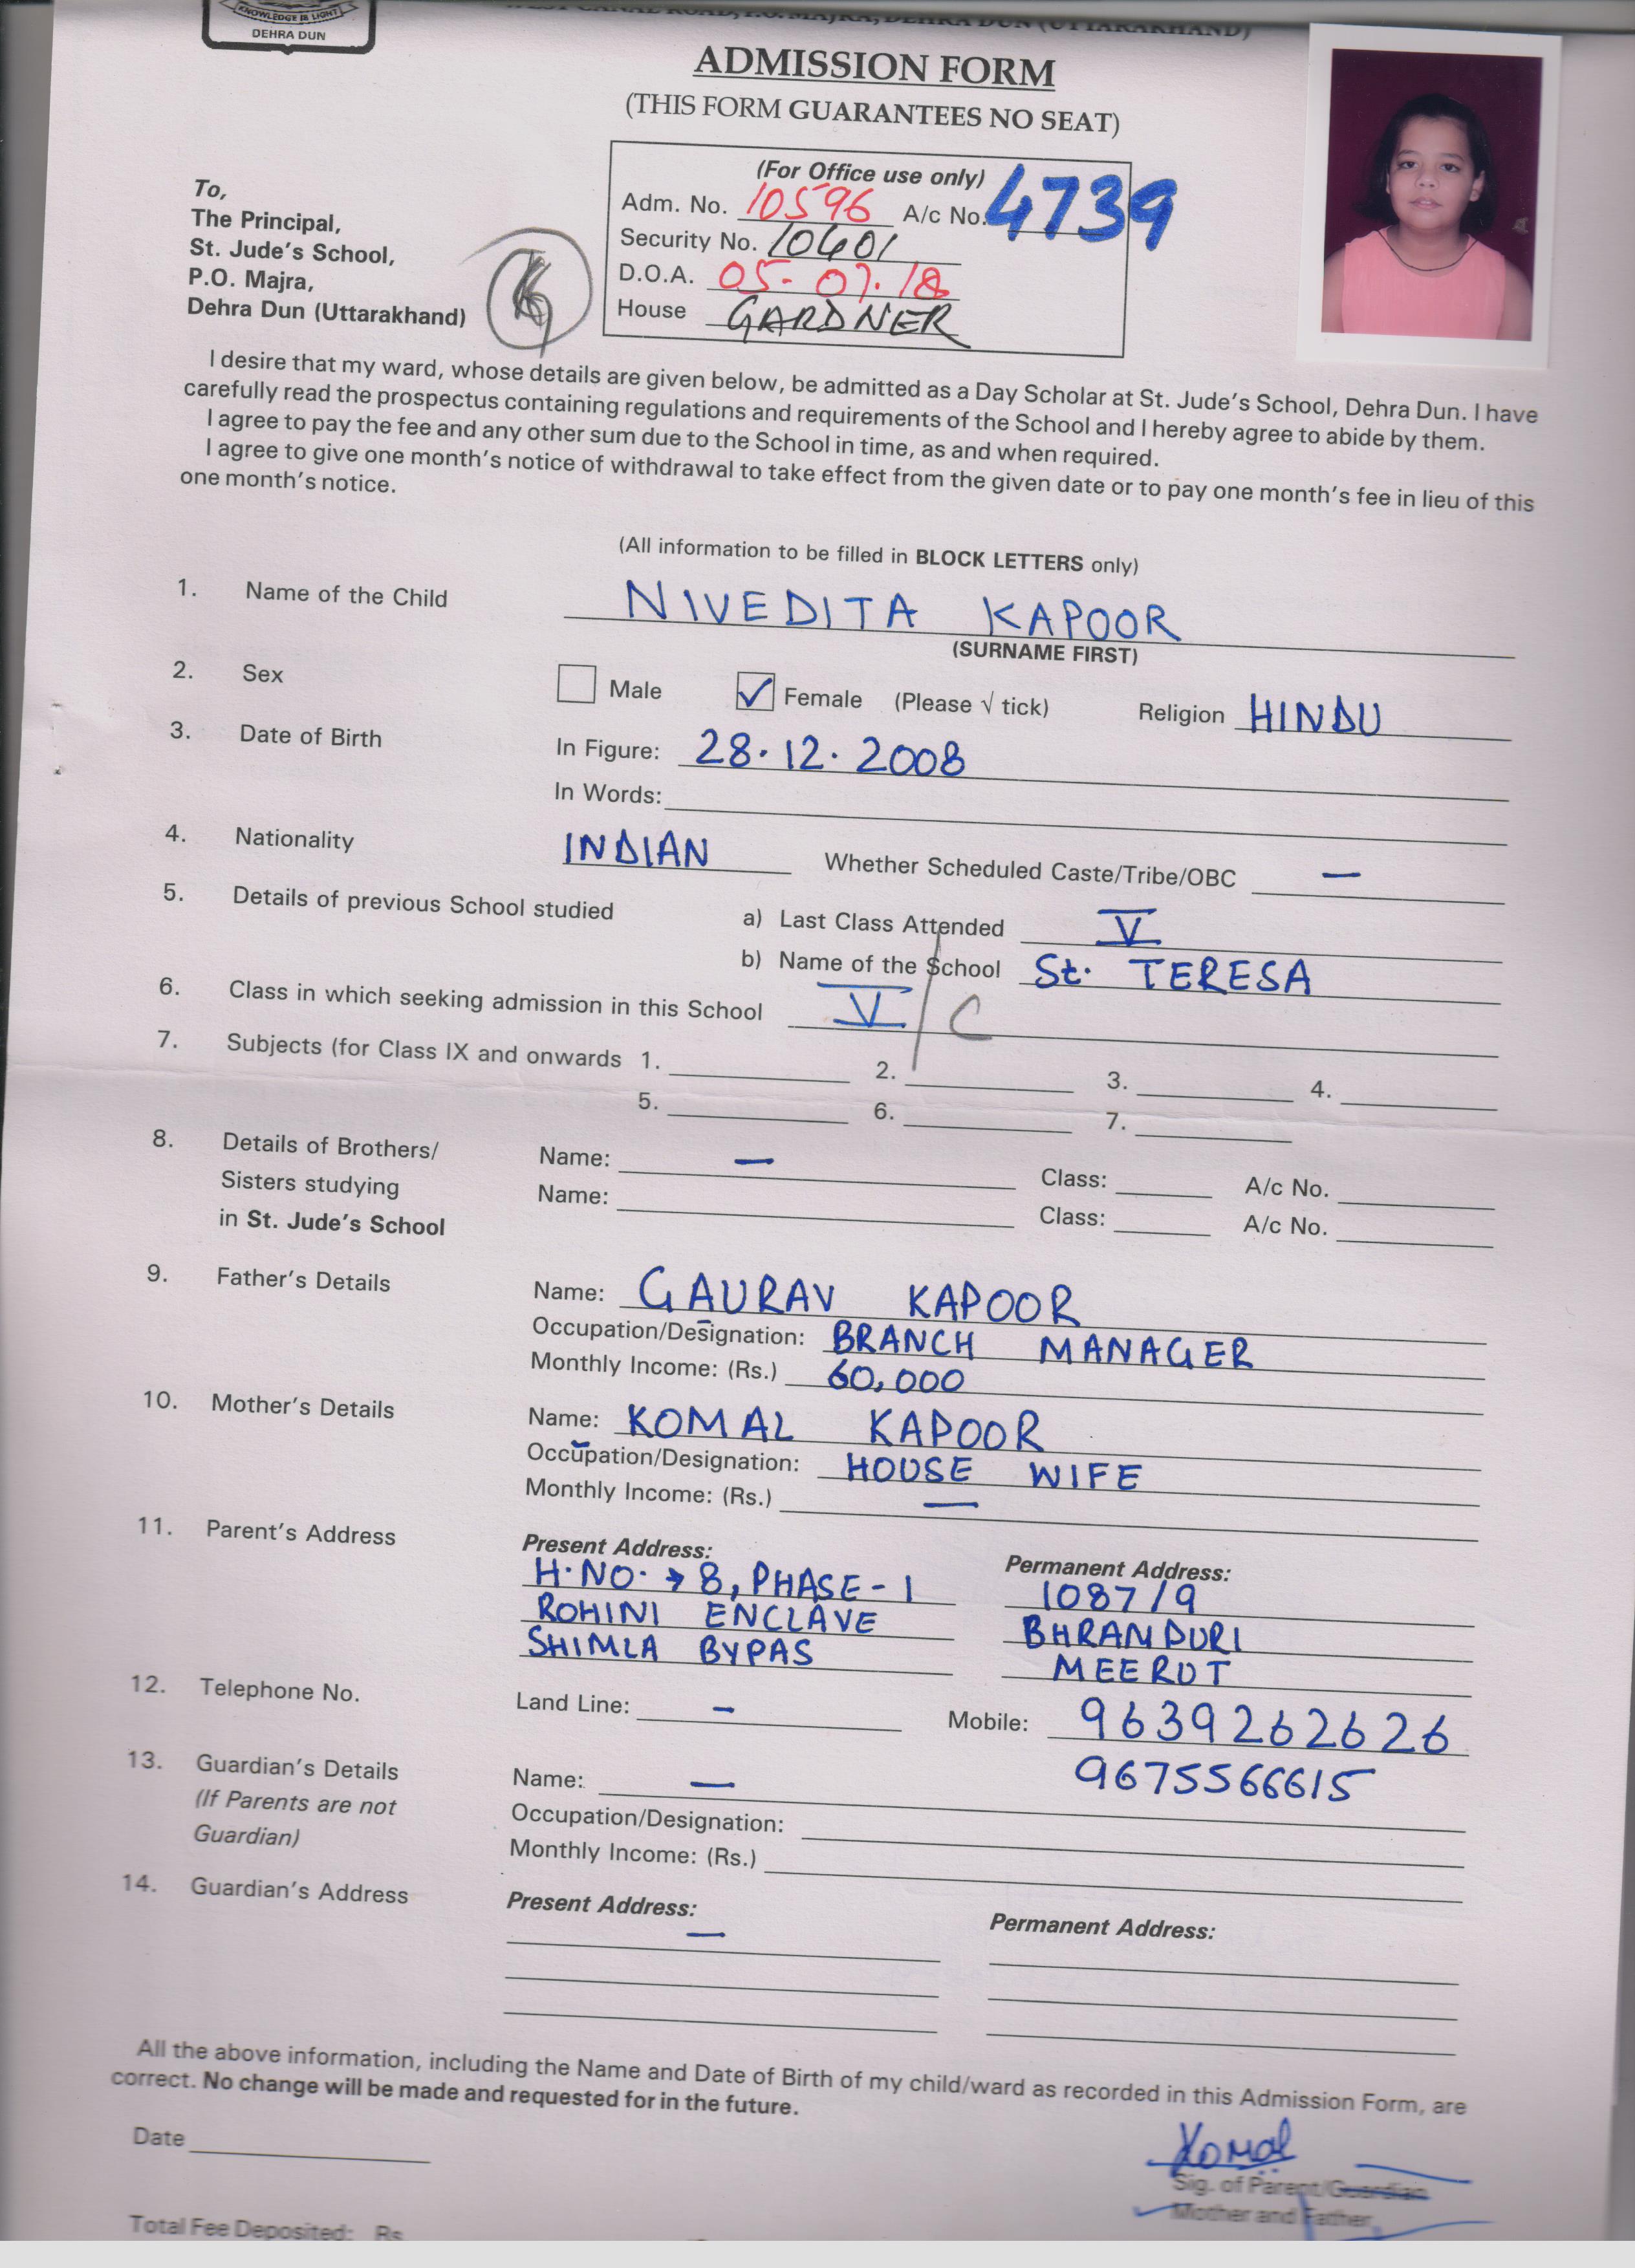 KNOWLEDGE IS LIGHT
DEHRA DUN
WEST CANAL ROAD, P.O. MAJRA, DEHRA DUN (UTTARAKHAND)
ADMISSION FORM
(THIS FORM GUARANTEES NO SEAT)
To,
The Principal,
St. Jude's School,
P.O. Majra,
Dehra Dun (Uttarakhand)
(For Office use only)
Adm. No. 10596 A/c No. 4739
Security No. 10401
D.O.A. 05-07.18
House GARDNER
I desire that my ward, whose details are given below, be admitted as a Day Scholar at St. Jude's School, Dehra Dun. I have
carefully read the prospectus containing regulations and requirements of the School and I hereby agree to abide by them.
I agree to pay the fee and any other sum due to the School in time, as and when required.
I agree to give one month's notice of withdrawal to take effect from the given date or to pay one month's fee in lieu of this
one month's notice.
(All information to be filled in BLOCK LETTERS only)
1. Name of the Child NIVEDITA KAPOOR
(SURNAME FIRST)
2. Sex Male ✓ Female (Please √ tick) Religion HINDU
3. Date of Birth In Figure: 28.12.2008
In Words:
4. Nationality INDIAN Whether Scheduled Caste/Tribe/OBC —
5. Details of previous School studied a) Last Class Attended V
b) Name of the School St. TERESA
6. Class in which seeking admission in this School V/C
7. Subjects (for Class IX and onwards 1. 2. 3. 4.
5. 6. 7.
8. Details of Brothers/ Name: — Class: A/c No.
Sisters studying Name: Class: A/c No.
in St. Jude's School
9. Father's Details Name: GAURAV KAPOOR
Occupation/Designation: BRANCH MANAGER
Monthly Income: (Rs.) 60,000
10. Mother's Details Name: KOMAL KAPOOR
Occupation/Designation: HOUSE WIFE
Monthly Income: (Rs.) —
11. Parent's Address Present Address: Permanent Address:
H.NO. → 8, PHASE-1 1087/9
ROHINI ENCLAVE BHRAMPURI
SHIMLA BYPAS MEERUT
12. Telephone No. Land Line: — Mobile: 9639262626
9675566615
13. Guardian's Details Name: —
(If Parents are not Occupation/Designation:
Guardian) Monthly Income: (Rs.)
14. Guardian's Address Present Address: — Permanent Address:
All the above information, including the Name and Date of Birth of my child/ward as recorded in this Admission Form, are
correct. No change will be made and requested for in the future.
Date
Komal
Sig. of Parent/Guardian
Mother and Father
Total Fee Deposited: Rs.